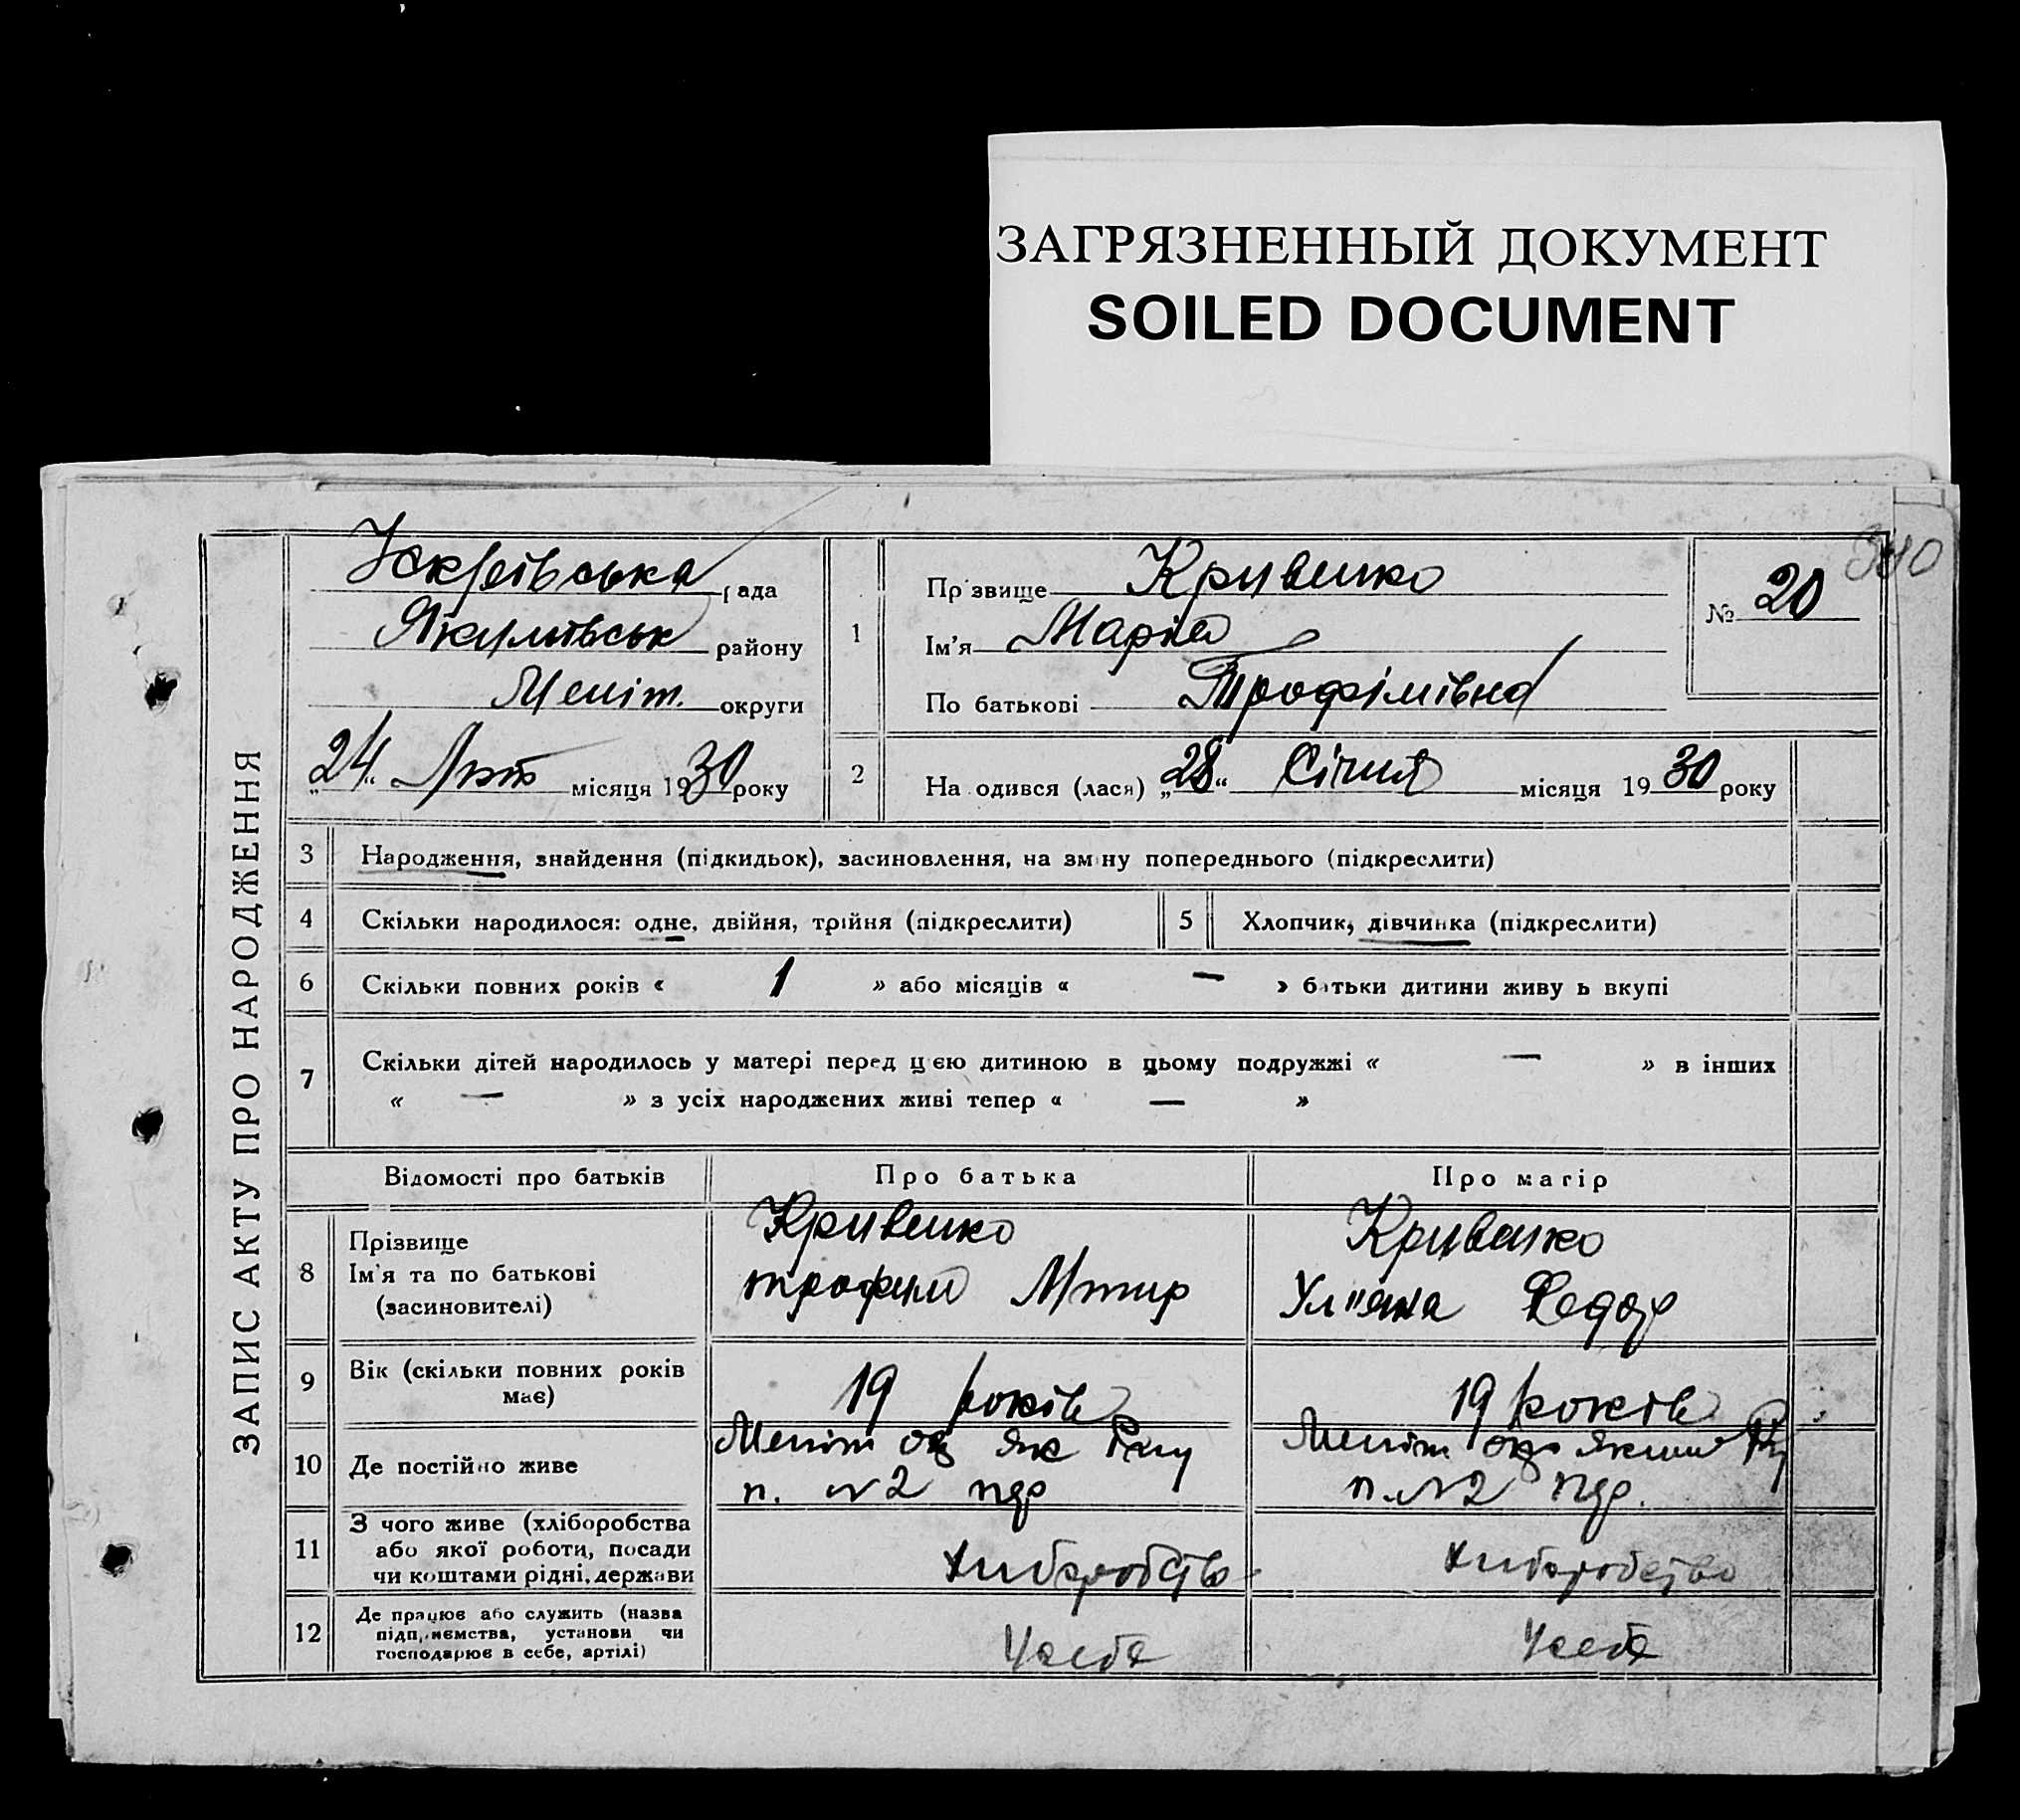 ЗАГРЯЗНЕННЫЙ ДОКУМЕНТ
SOILED DOCUMENT
340
ЗАПИС АКТУ ПРО НАРОДЖЕННЯ
рада
району
Меліт. округи
„24“ Лют місяця 1930 року
1
Прізвище Кривенко
Ім'я Марія
По батькові Трофімівна
№ 20
2 На одився (лася) „28“ Січня місяця 1930 року
3 Народження, знайдення (підкидьок), засиновлення, на зміну попереднього (підкреслити)
4 Скільки народилося: одне, двійня, трійня (підкреслити)
5 Хлопчик, дівчинка (підкреслити)
6 Скільки повних років « 1 » або місяців « — » батьки дитини живу ь вкупі
7 Скільки дітей народилось у матері перед цією дитиною в цьому подружжі « — » в інших
« — » з усіх народжених живі тепер « — »
Відомості про батьків Про батька Про матір
8 Прізвище
Ім'я та по батькові
(засиновителі)
Кривенко
трофим
Кривенко
Ул"яна Федор
9 Вік (скільки повних років
має)
19 років
19 років
10 Де постійно живе
Меліт ок Як
п. №2
Меліт окр
п. №2
11 З чого живе (хліборобства
або якої роботи, посади
чи коштами рідні, держави
Хліборобство
Хліборобство
12 Де працює або служить (назва
підприємства, установи чи
господарює в себе, артілі)
У себе
У себе